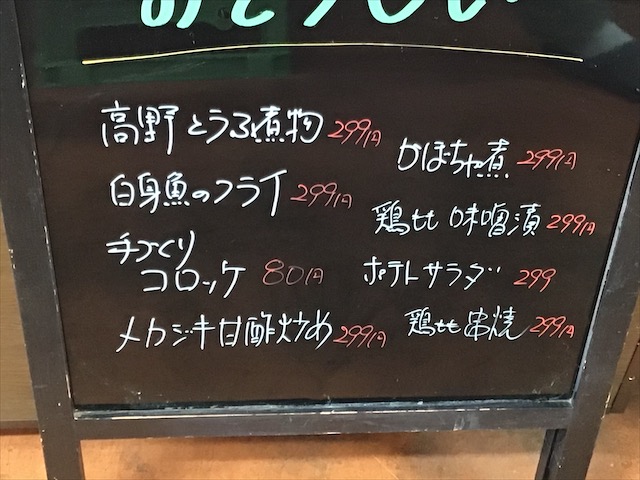 高野とうふ煮物 299円
白身魚のフライ 299円
手づくり
コロッケ 80円
メカジキ甘酢炒め 299円
かぼちゃ煮 299円
鶏もも味噌漬 299円
ポテトサラダ 299
鶏もも串焼 299円